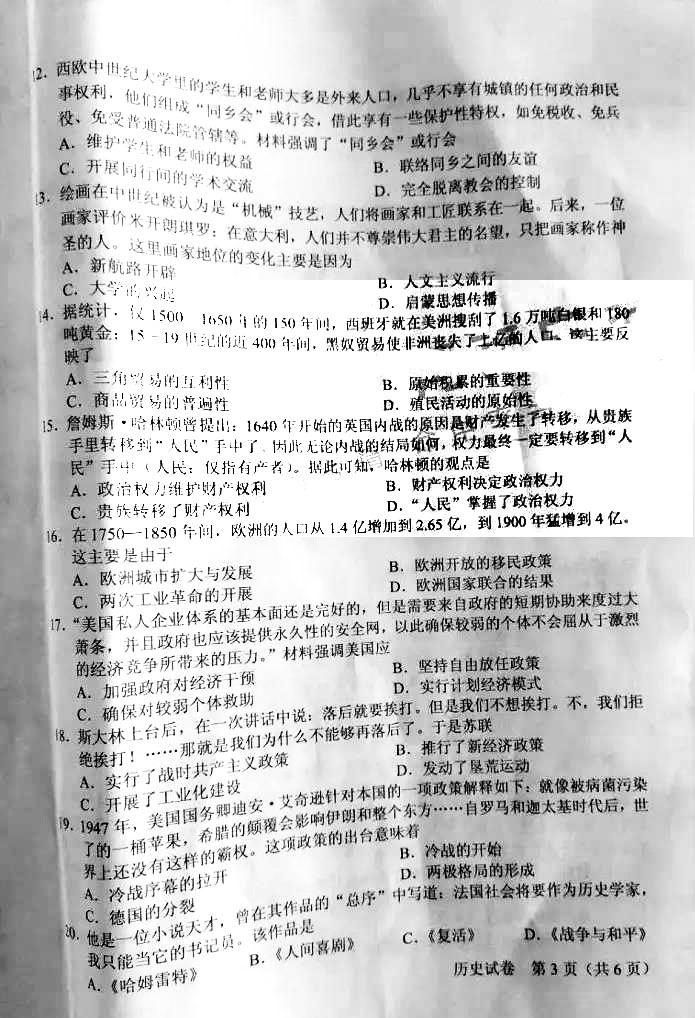 12. 西欧中世纪大学里的学生和老师大多是外来人口，几乎不享有城镇的任何政治和民
事权利，他们组成“同乡会”或行会，借此享有一些保护性特权，如免税收、免兵
役、免受普通法院管辖等。材料强调了“同乡会”或行会
A．维护学生和老师的权益
B．联络同乡之间的友谊
C．开展同行间的学术交流
D．完全脱离教会的控制
13. 绘画在中世纪被认为是“机械”技艺，人们将画家和工匠联系在一起。后来，一位
画家评价米开朗琪罗：在意大利，人们并不尊崇伟大君主的名望，只把画家称作神
圣的人。这里画家地位的变化主要是因为
A．新航路开辟
B．人文主义流行
C．大学的兴起
D．启蒙思想传播
14. 据统计，仅1500—1650年的150年间，西班牙就在美洲搜刮了1.6万吨白银和180
吨黄金；15－19世纪的近400年间，黑奴贸易使非洲丧失了上亿的人口。这主要反
映了
A．三角贸易的互利性
B．原始积累的重要性
C．商品贸易的普遍性
D．殖民活动的原始性
15. 詹姆斯·哈林顿曾提出：1640年开始的英国内战的原因是财产发生了转移，从贵族
手里转移到“人民”手中了。因此无论内战的结局如何，权力最终一定要转移到“人
民”手中（人民：仅指有产者）。据此可知，哈林顿的观点是
A．政治权力维护财产权利
B．财产权利决定政治权力
C．贵族转移了财产权利
D．“人民”掌握了政治权力
16. 在1750—1850年间，欧洲的人口从1.4亿增加到2.65亿，到1900年猛增到4亿。
这主要是由于
A．欧洲城市扩大与发展
B．欧洲开放的移民政策
C．两次工业革命的开展
D．欧洲国家联合的结果
17. “美国私人企业体系的基本面还是完好的，但是需要来自政府的短期协助来度过大
萧条，并且政府也应该提供永久性的安全网，以此确保较弱的个体不会屈从于激烈
的经济竞争所带来的压力。”材料强调美国应
A．加强政府对经济干预
B．坚持自由放任政策
C．确保对较弱个体救助
D．实行计划经济模式
18. 斯大林上台后，在一次讲话中说：落后就要挨打。但是我们不想挨打。不，我们拒
绝挨打！……那就是我们为什么不能够再落后了。于是苏联
A．实行了战时共产主义政策
B．推行了新经济政策
C．开展了工业化建设
D．发动了垦荒运动
19. 1947年，美国国务卿迪安·艾奇逊针对本国的一项政策解释如下：就像被病菌污染
了的一桶苹果，希腊的颠覆会影响伊朗和整个东方……自罗马和迦太基时代后，世
界上还没有这样的霸权。这项政策的出台意味着
A．冷战序幕的拉开
B．冷战的开始
C．德国的分裂
D．两极格局的形成
20. 他是一位小说天才，曾在其作品的“总序”中写道：法国社会将要作为历史学家，
我只能当它的书记员。该作品是
A．《哈姆雷特》
B．《人间喜剧》
C．《复活》
D．《战争与和平》
历史试卷 第3页（共6页）